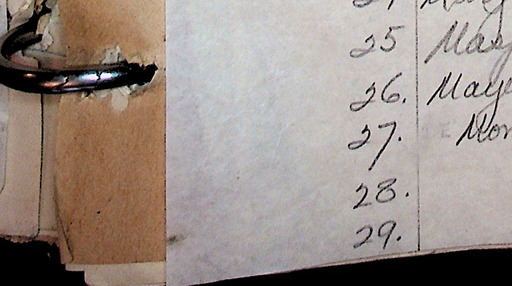 25 May
26. Maye
27. Mon
28.
29.